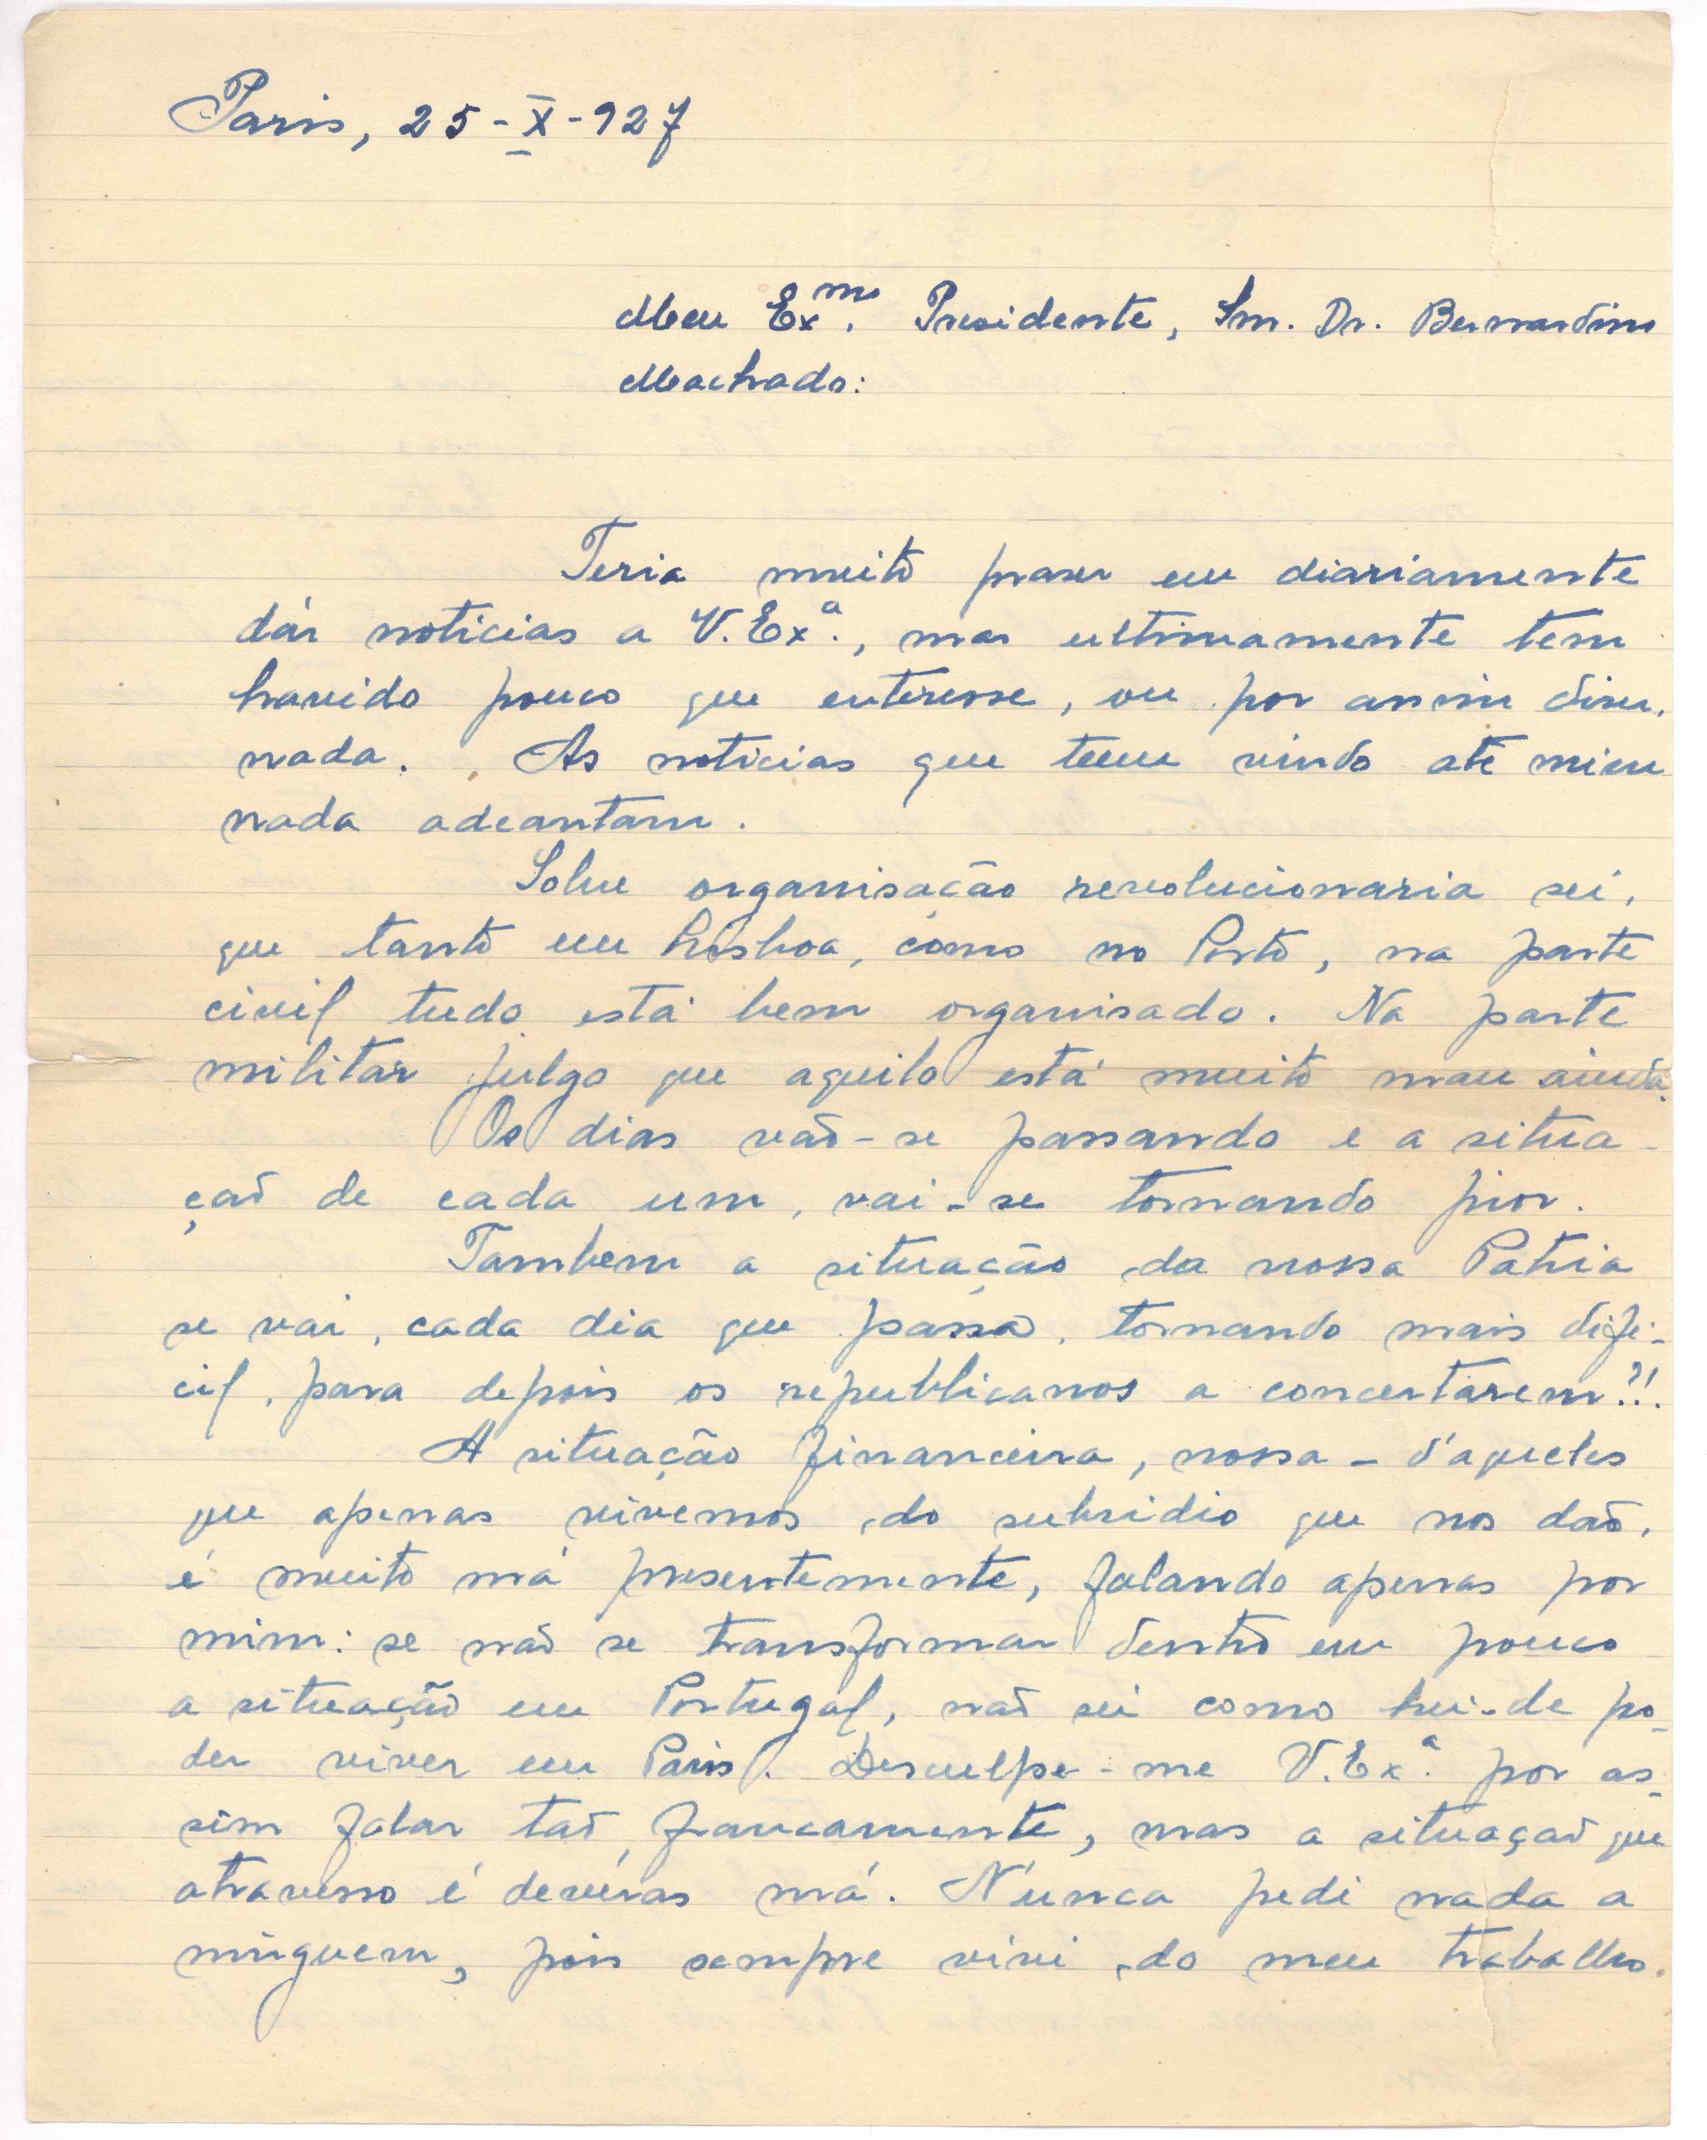 Paris, 25-X-927
Meu Exmo. Presidente, Snr. Dr. Bernardino
Machado:
Teria muito praser em diariamente
dár noticias a V. Exª., mas ultimamente tem
havido pouco que enteresse, ou por assim diser,
nada. As noticias que teem vindo até mim
nada adeantam.
Sobre organisação revolucionaria sei,
que tanto em Lisboa, como no Porto, na parte
civil tudo está bem organisado. Na parte
militar julgo que aquilo está muito mau ainda.
Os dias vaõ-se passando e a situa-
çaõ de cada um, vai-se tornando pior.
Tambem a situação da nossa Patria
se vai, cada dia que passa, tornando mais difi-
cil, para depois os republicanos a concertarem?!!
A situação financeira, nossa - d'aqueles
que apenas vivemos do subsidio que nos daõ,
é muito má presentemente, falando apenas por
mim: se naõ se transformar dentro em pouco
a situação em Portugal, naõ sei como hei-de po-
der viver em Paris. Desculpe-me V. Exª. por as-
sim falar taõ francamente, mas a situaçaõ que
atravesso é devéras má. Núnca pedi nada a
ninguem, pois sempre vivi do meu trabalho.